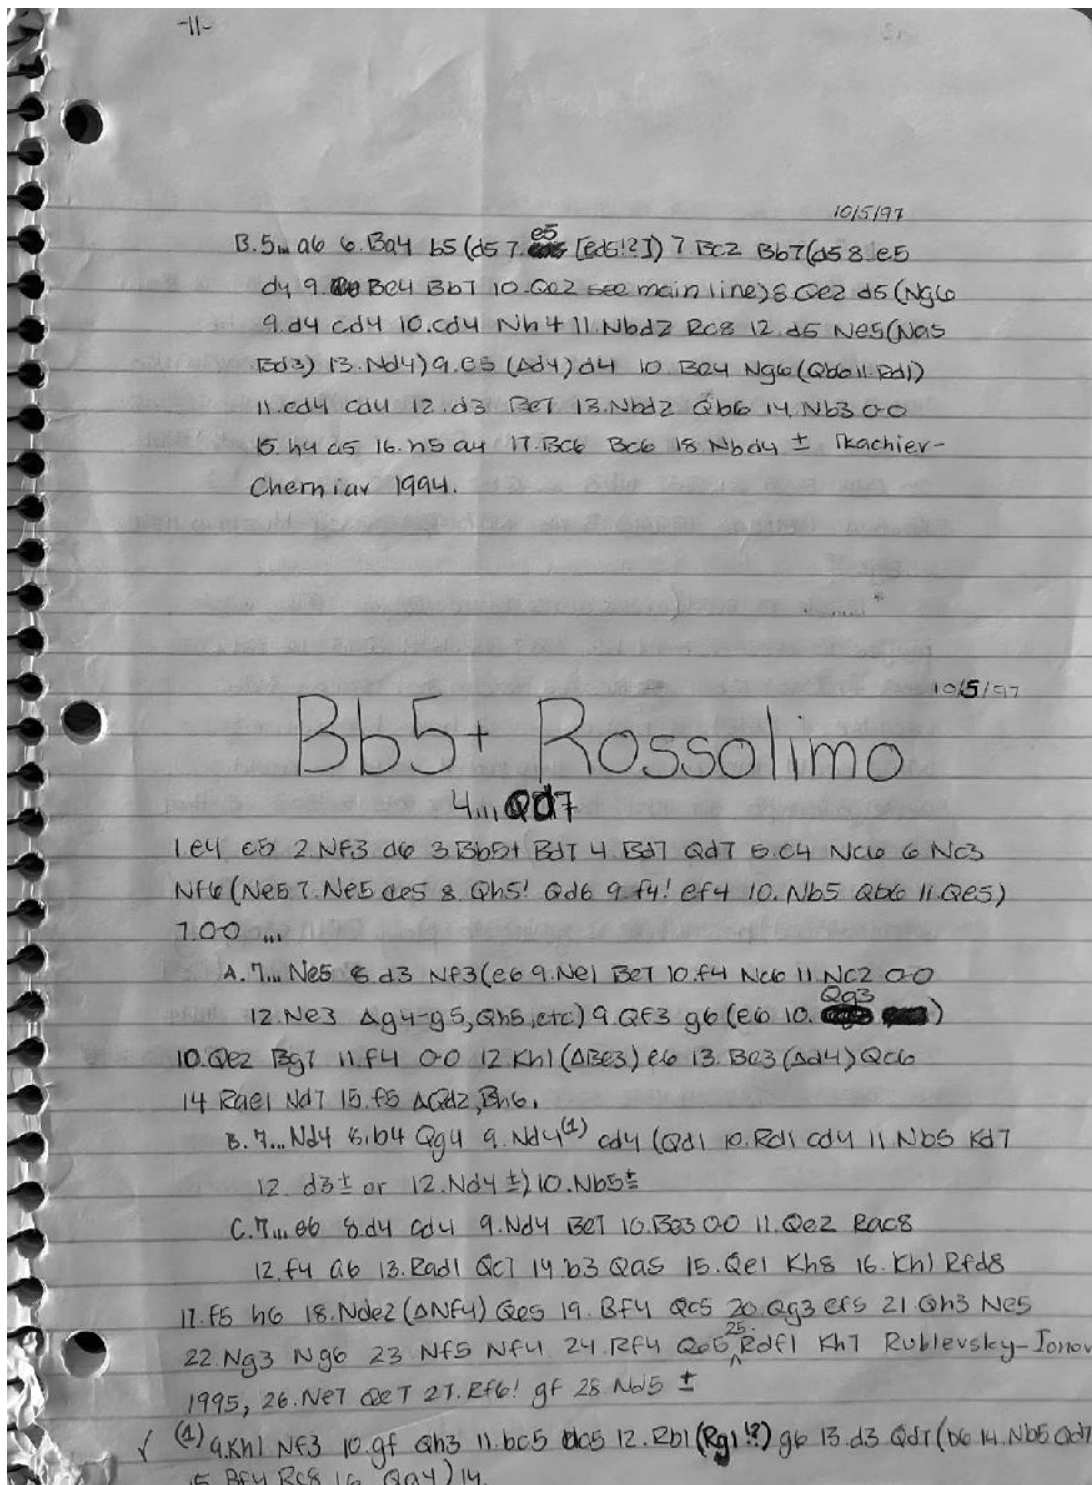 -11-
10/5/97
B.5... a6 6.Ba4 b5 (d5 7. e5 [ed5!?]) 7 Bc2 Bb7 (d5 8 e5
d4 9. Be4 Bb7 10. Qe2 see main line) 8 Qe2 d5 (Ng6
9.d4 cd4 10.cd4 Nh4 11.Nbd2 Rc8 12.d5 Ne5 (Na5
Bd3) 13.Nd4) 9.e5 (Δd4) d4 10 Be4 Ng6 (Qb6 11.Rd1)
11.cd4 cd4 12.d3 Be7 13.Nbd2 Qb6 14.Nb3 0-0
15.h4 a5 16.h5 a4 17.Bc6 Bc6 18.Nbd4 ± Tkachiev-
Cherniav 1994.
10/5/97
Bb5+ Rossolimo
4... Qd7
1.e4 c5 2.Nf3 d6 3.Bb5+ Bd7 4.Bd7 Qd7 5.c4 Nc6 6 Nc3
Nf6 (Ne5 7.Ne5 de5 8. Qh5! Qd6 9.f4! ef4 10. Nb5 Qb6 11.Qe5)
7.0-0 ...
A.7... Ne5 8.d3 Nf3 (e6 9.Ne1 Be7 10.f4 Nc6 11.Nc2 0-0
12.Ne3 Δg4-g5, Qh5, etc) 9.Qf3 g6 (e6 10. Qg3)
10.Qe2 Bg7 11.f4 0-0 12 Kh1 (ΔBe3) e6 13.Be3 (Δd4) Qc6
14 Rae1 Nd7 15.f5 ΔQd2, Bh6.
B.7... Nd4 8.b4 Qg4 9.Nd4(1) cd4 (Qd1 10.Rd1 cd4 11 Nb5 Kd7
12. d3 ± or 12.Nd4 ±) 10.Nb5 ±
C.7... e6 8.d4 cd4 9.Nd4 Be7 10.Be3 0-0 11.Qe2 Rac8
12.f4 a6 13.Rad1 Qc7 14.b3 Qa5 15.Qe1 Kh8 16.Kh1 Rfd8
17.f5 h6 18.Nde2 (ΔNf4) Qe5 19.Bf4 Qc5 20.Qg3 ef5 21 Qh3 Ne5
22.Ng3 Ng6 23 Nf5 Nf4 24.Rf4 Qe5 25. Rdf1 Kh7 Rublevsky-Ionov
1995, 26.Ne7 Qe7 27.Rf6! gf 28.Nd5 ±
✓ (1) 9.Kh1 Nf3 10.gf Qh3 11.bc5 dc5 12.Rb1 (Rg1!?) g6 13.d3 Qd7 (b6 14.Nb5 Qd7
15 Bf4 Rc8 16 Qa4) 14.